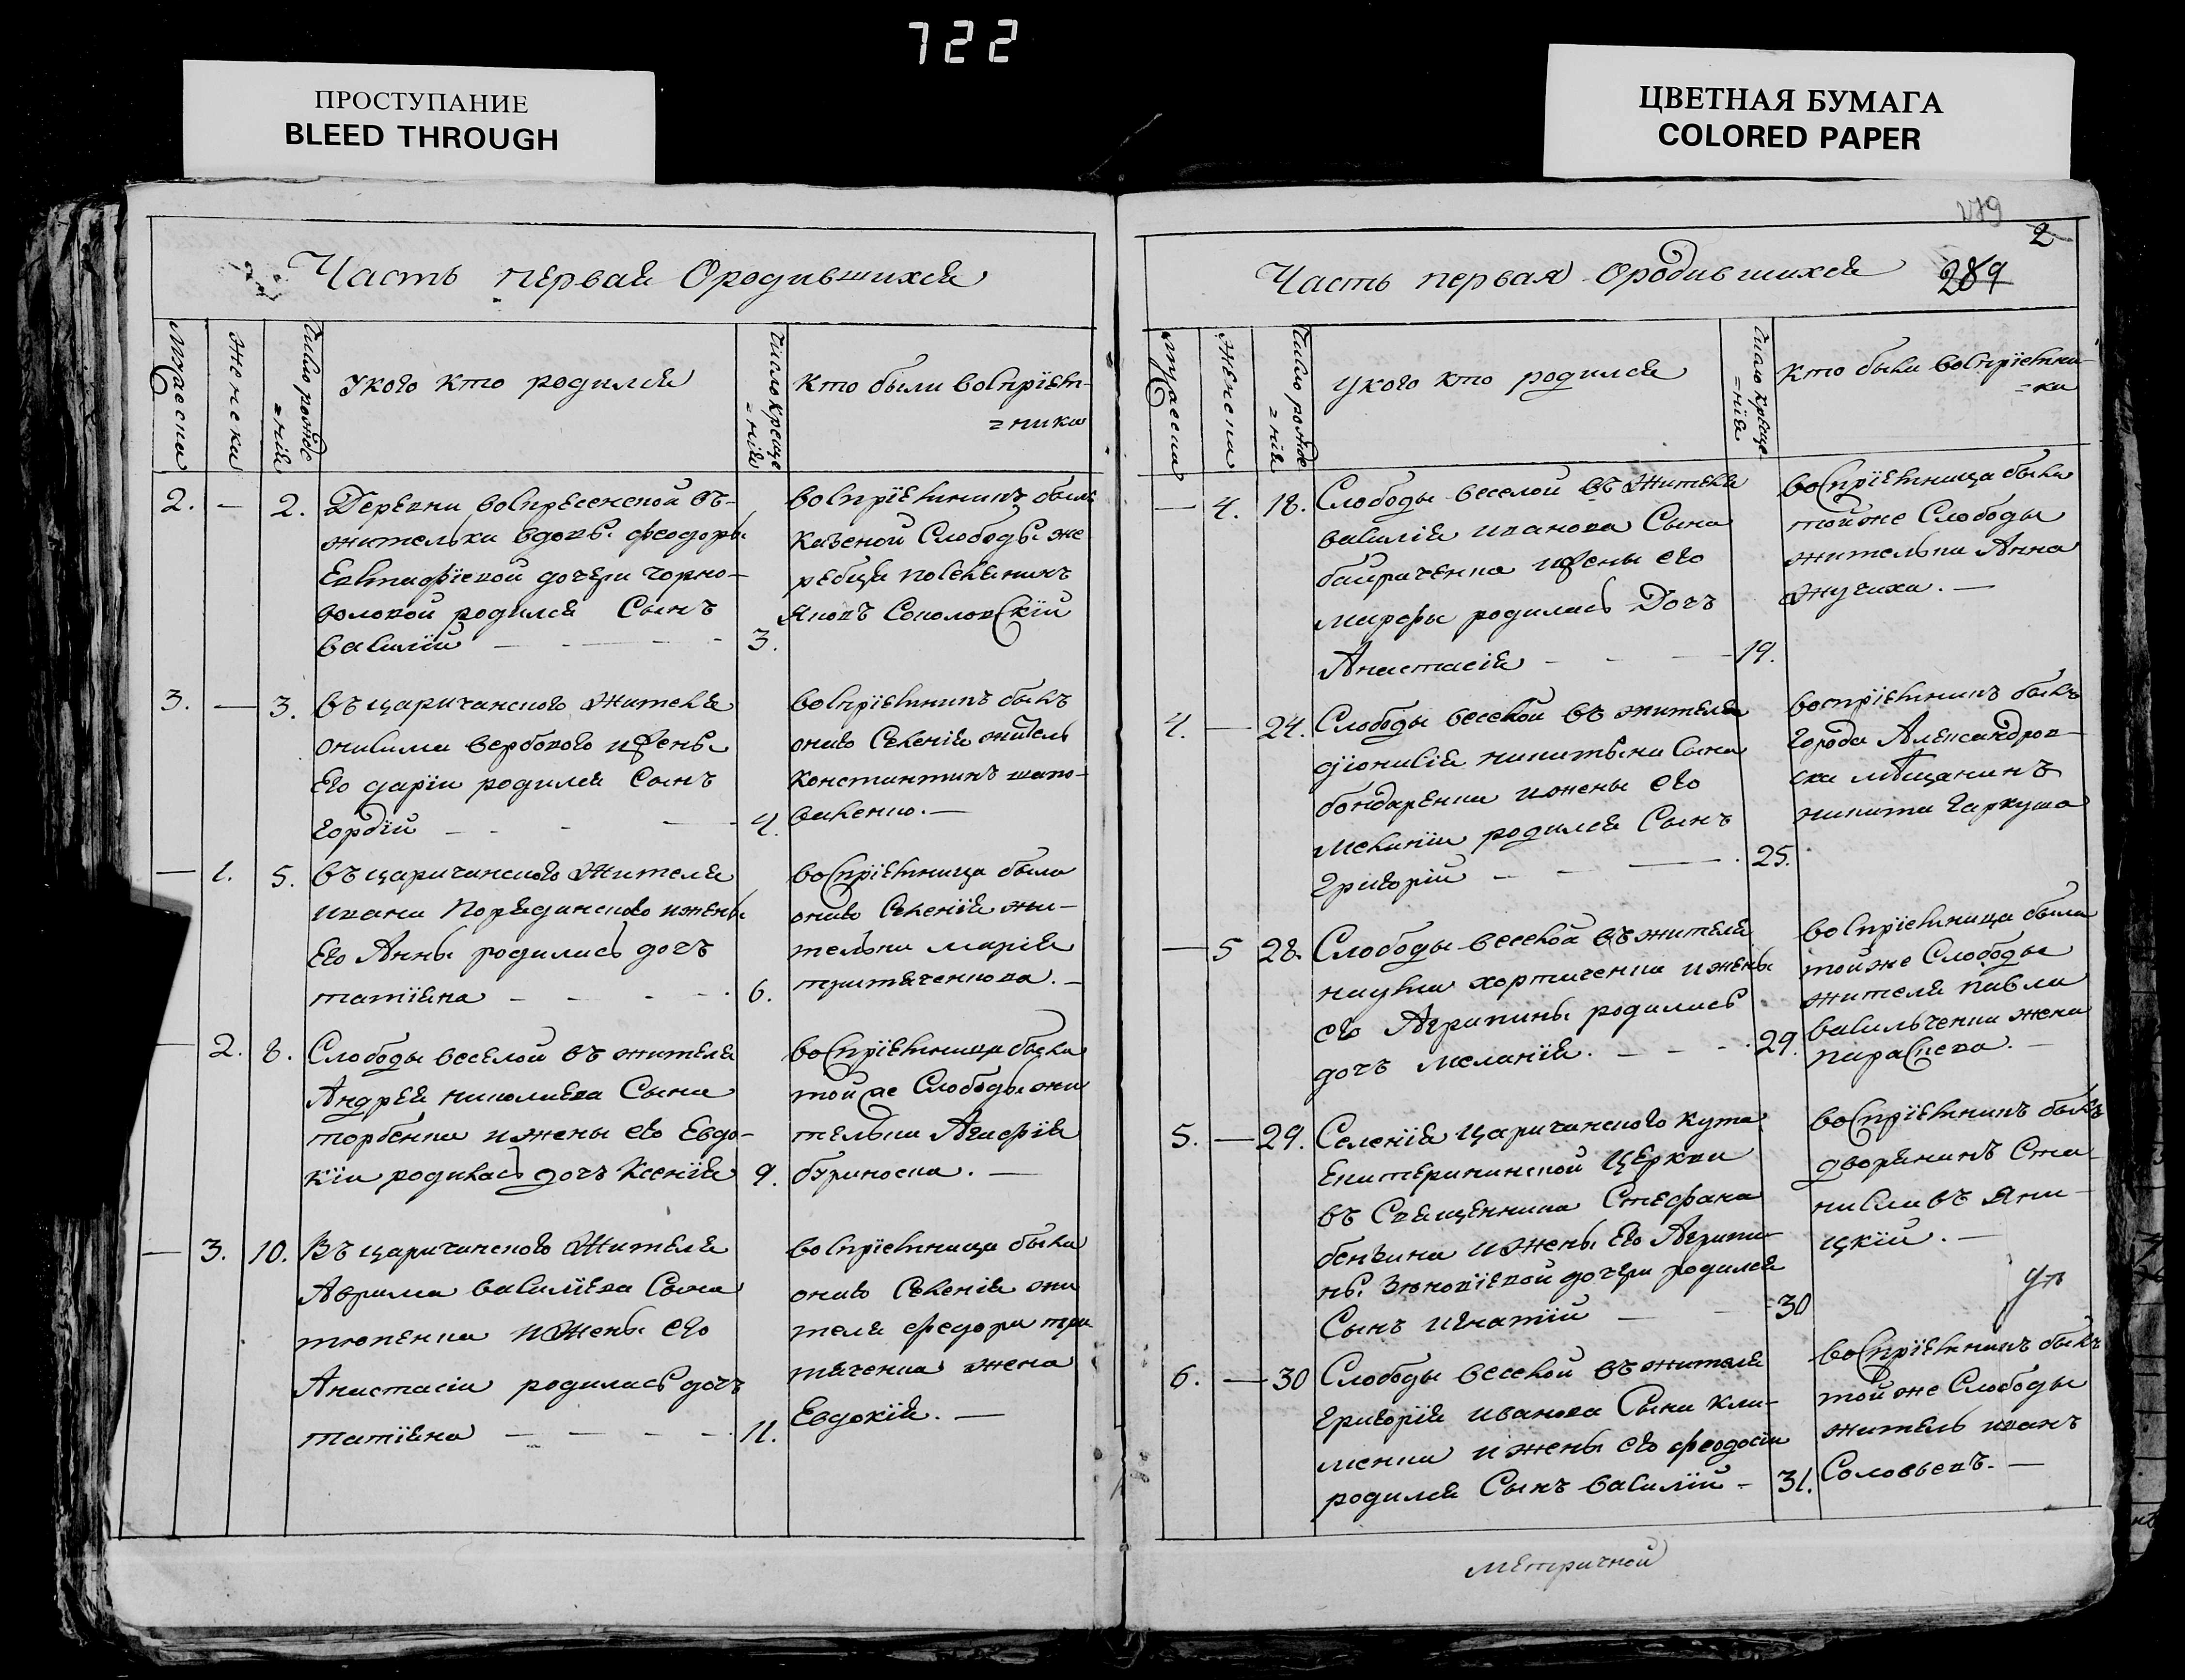 722
ПРОСТУПАНИЕ
BLEED THROUGH
ЦВЕТНАЯ БУМАГА
COLORED PAPER
Часть первая Ородившихся
мужеска
женска
число рожде
=нія
Укого кто родился
число креще
=нія
Кто были воспріем-
=ники
2. — 2. Деревни воскресенской въ-
жительки вдовы феодоры
Евстафіевой дочери чорно-
воловой родился Сынъ
василій 3.
воспріемникъ былъ
казеной Слободы же
ребца поселянинъ
Яковъ Соколовскій
3. — 3. въ царичанского жителя
онисима вербового ижены
Его даріи родился Сынъ
гордій 4.
воспріемникъ былъ
оного Селенія житель
константинъ шапо-
валенко. —
— 1. 5. въ царичанского жителя
ивана Порядинского ижены
Его Анны родилась дочъ
татіяна 6.
воспріемница была
оного Селенія жи-
телька марія
притыченкова. —
— 2. 8. Слободы веселой въ жителя
Андрея николаева Сына
торбенка ижены его Евдо-
кіи родилась дочъ Ксенія 9.
воспріемница была
той же Слободы жи
телька Агафія
буриноска. —
— 3. 10. Въ царичанского жителя
Аврама василіева Сына
тюпенка ижены его
Анастасіи родилась дочъ
татіяна 11.
воспріемница была
оного Селенія жи
теля федора при
тыченка жена
Евдокія. —
279
2
Часть первая Ородившихся 289
мужеска
женска
число рожде
=нія
укого кто родился
число креще-
=нія
Кто были воспріемни-
=ки
— 4. 18. Слободы веселой въ жителя
василія иванова Сына
байраченка ижены его
марфы родилась Дочъ
Анастасія 19.
воспріемница была
тойже Слободы
жителька Анна
жучиха. —
4. — 24. Слободы веселой въ жителя
діонисія никитына Сына
бондаренка ижены его
меланіи родился Сынъ
григорій 25.
воспріемникъ былъ
города Александров-
ска мещанинъ
никита Гаркуша
— 5 28. Слободы веселой въ жителя
наума хортиченка ижены
его Агрипины родилась
дочъ меланія. 29.
воспріемница была
тойже Слободы
жителя павла
васильченка жена
параскева. —
5. — 29. Селенія царичанского кута
Екатерининской церкви
въ Священника Стефана
бенкина ижены Его Агрипи-
ны Зѣновіевой дочери родился
Сынъ игнатій — 30
воспріемникъ былъ
дворянинъ Ста-
ниславъ Яни-
цкій. —
6. — 30 Слободы веселой въ жителя
григорія иванова Сына кли-
менка ижены его феодосіи
родился Сынъ василій — 31.
воспріемникъ былъ
той же Слободы
житель иванъ
Соловьевъ. —
метричной